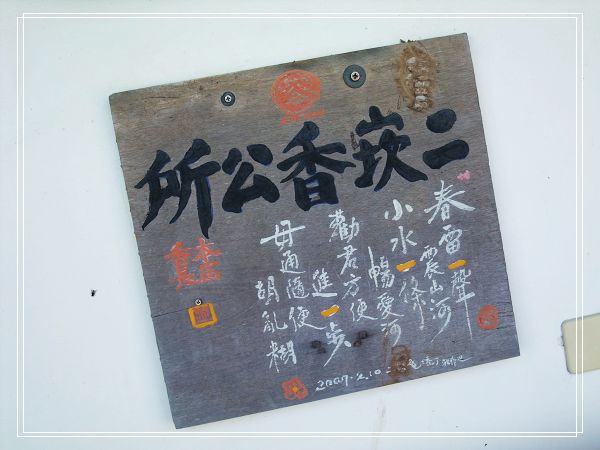 二崁香公所
春雷一聲
震山河
小水一條
暢愛河
勸君方便
進一步
毋通隨便
胡亂糊